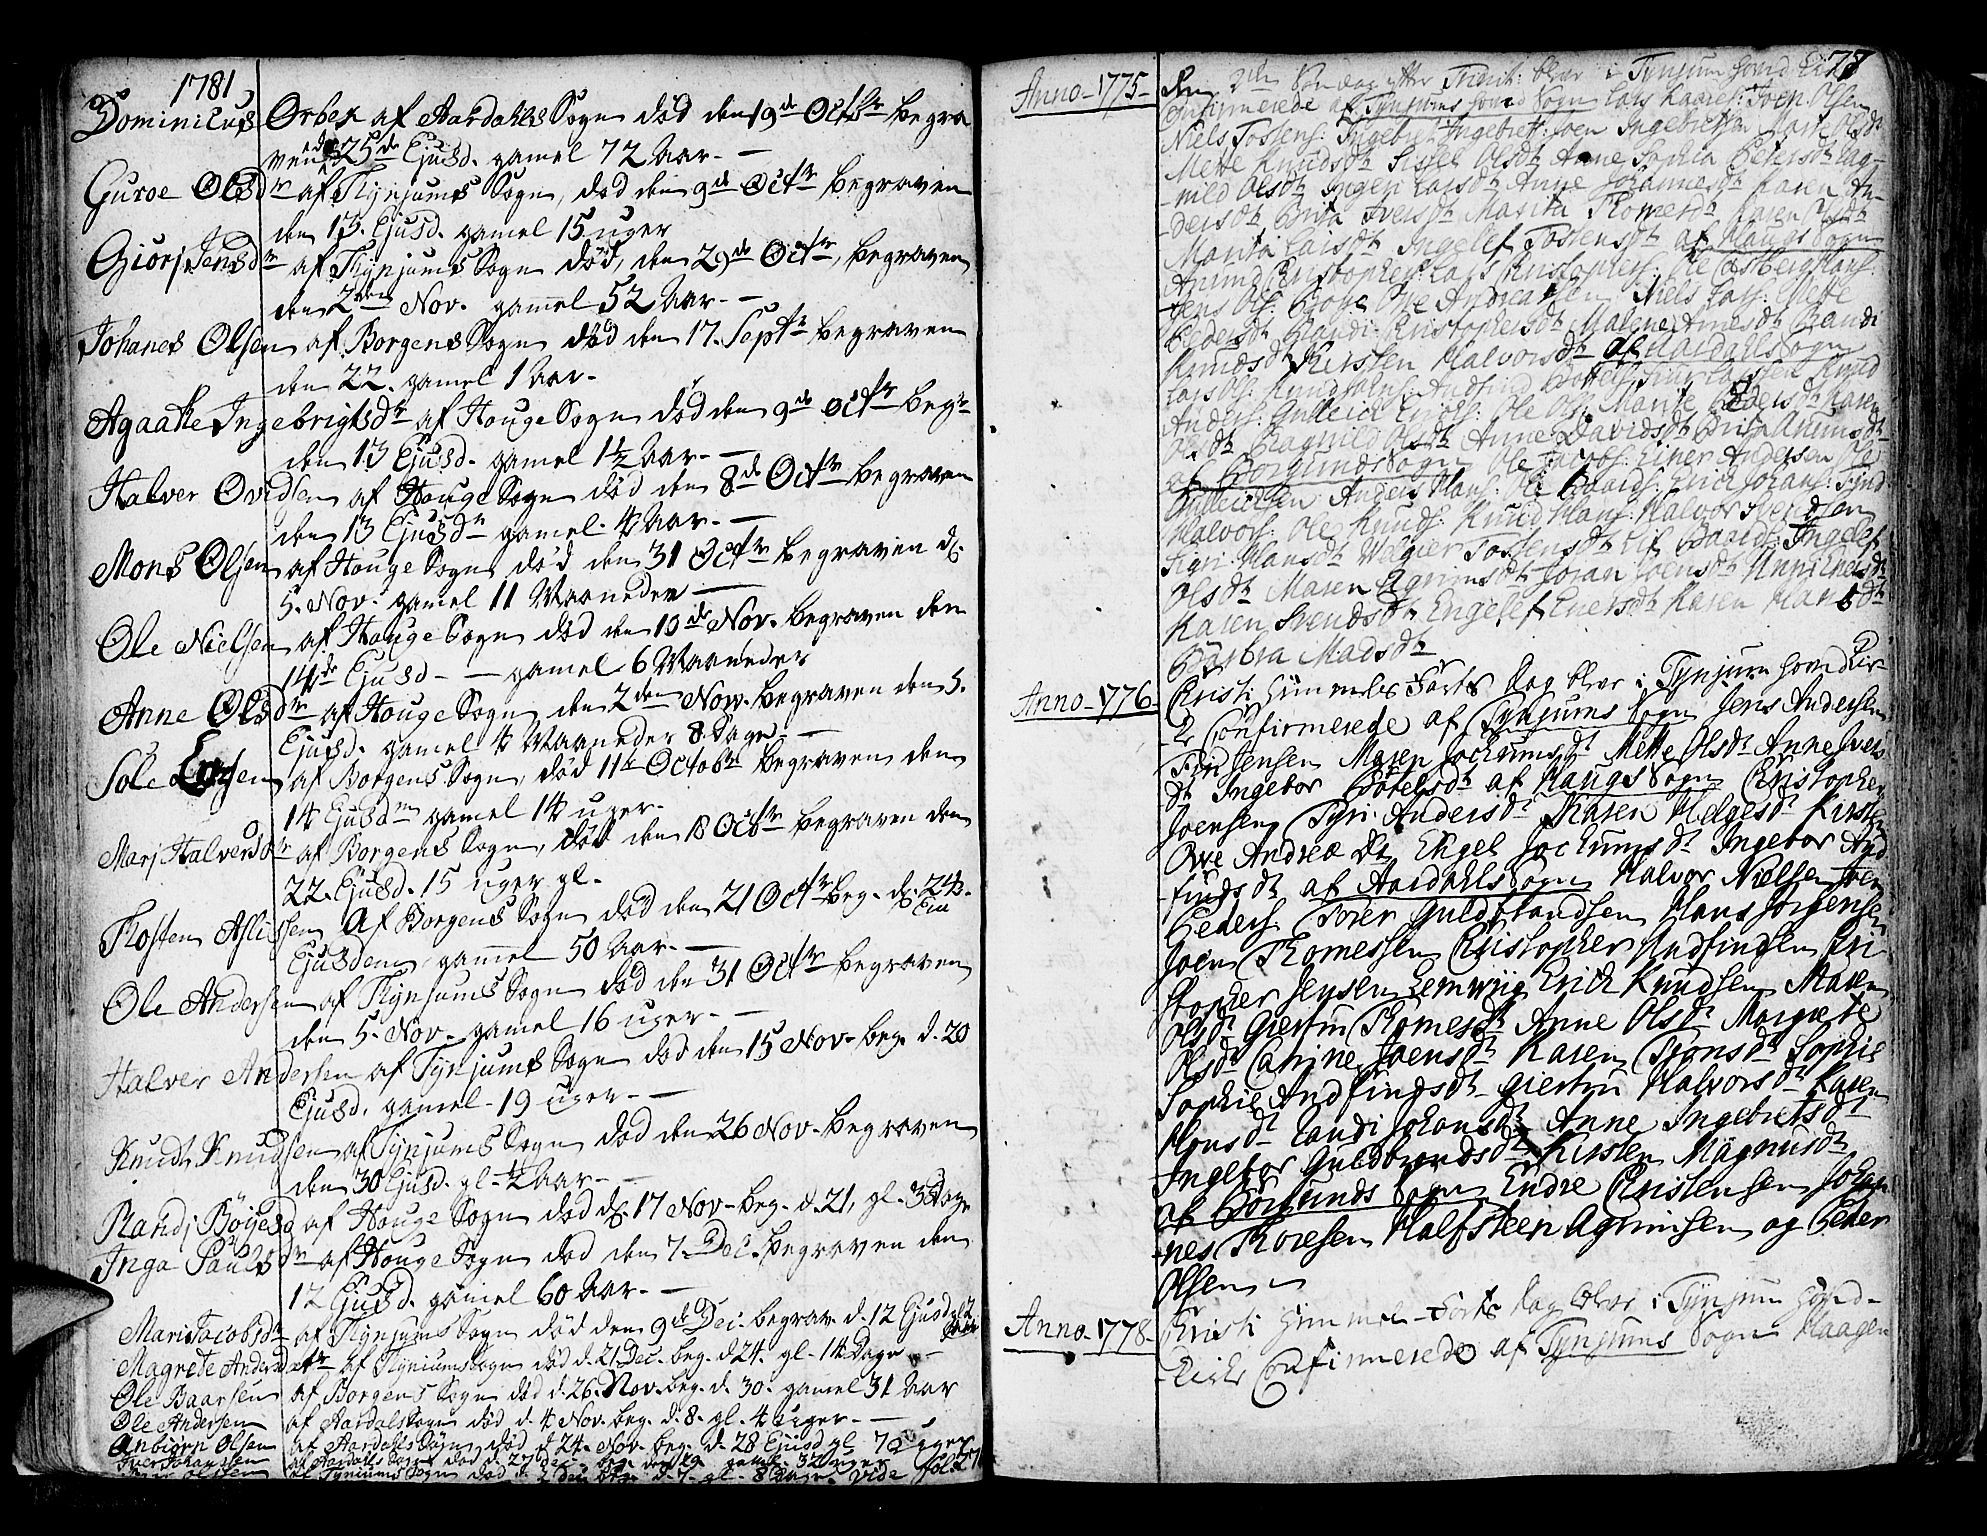 1781
Dominicus Orbex af Aardahls Sogn död den 19de Octbr begra
vende 25de Ejusd. gamel 72 Aar. —
Guroe Olsdr af Thynjums Sogn, död den 9de Octr begraven
den 13. Ejusd. gamel 15 uger
Giörj Jensdr af Thynjums Sogn död, den 29de Octr, begraven
den 2den Nov. gamel 52 Aar. —
Johanes Olsen af Borgens Sogn död den 17. Septr begraven
den 22. gamel 1 Aar.
Agaathe Ingebrigtsdr af Houge Sogn död den 9de Octr begr
den 13 Ejusd. gamel 1½ Aar. —
Halver Ovidsen af Houge Sogn död den 8de Octr begraven
den 13 Ejusdn gamel 4 Aar. —
Mons Olsen af Houge Sogn död den 31 Octr begraven d:
5. Nov. gamel 11 Maaneder —
Ole Nielsen af Houge Sogn död den 10de Nov. begraven den
14de Ejusd — gamel 6 Maaneder
Anne Olsdr af Houge Sogn den 2den Nov. begraven den 5.
Ejusd. gamel 4 Maaneder 8 Dage. —
Sole Larsen af Borgens Sogn, död 11te Octobr begraven den
14 Ejusdm gamel 14 uger.
Marj Halversdr af Borgens Sogn, död den 18 Octbr begraven den
22. Ejusd. 15 uger gl.
Thosten Aslissen af Borgens Sogn död den 21 Octr beg. d. 24
Ejusdem gamel 50 Aar. —
Ole Andersen af Thynjums Sogn död den 31 Octr begraven
den 5. Nov. gamel 16 uger. —
Halver Andersen af Tynjums Sogn död den 15 Nov. beg. d. 20
Ejusd. gamel 19 uger. —
Knudt Knudsen af Tynjums Sogn död den 26 Nov. begraven
den 30 Ejusd. gl. ½ Aar. —
Randj Böjesd af Houge Sogn död d. 17 Nov. beg. d. 21, gl. 3 Dage
Inga Paulsdr af Houge Sogn död den 7. Dec. begraven den
12 Ejusd. gamel 60 Aar. —
Mari Jacobsdr af Thynjums Sogn död den 9de Dec. begrav. d. 12 Ejusd gl 2
Magrete Andersdatr af Thyniums Sogn död d. 21 Dec. beg. d 24. gl. 14 Dage —
Ole Baarsen af Borgens Sogn död d. 26. Nov. beg. d. 30. gamel 31 Aar
Ole Andersen af Aardals Sogn död d. 4 Nov. beg. d. 8. gl. 4 uger. —
Anbiörn Olsen af Aardals Sogn död d. 24. Nov. beg. d. 28 Ejusd gl. 7 uger
Iver Johansen af Aardals Sogn död d. 27 Dec. beg. den 29 gamel 32 uger
Olsen af Tyniums Sogn död d. 2 Dec. beg. d. 7. gl. 8 Dage. vide fol.
77
Anno 1775. Den 2den Söndag efter Trinit: blev i Tynjum hoved Kirke
Confirmerede af Tynjums hoved Sogn Lars Kaares: Joen Olsen
Niels Tostens: Ingebret Ingebrett: Joen Ingebretsen Marte Olsdt
Mette Knudsdt Sishel Olsdt Anne Sophia Pedersdt Rag-
nild Olsdt Ingeri Larsdt Anne Johannesdt Karen An-
dersdt Brita Iversdt Marita Thomesdt Karen Olsdt
Marita Larsdt Ingelef Tostensdt af Haugs Sogn
Amund Christopher: Lars Christophers: Ole Castberg Hans:
Jens Ols: Ove Andreasen Niels Lars: Mette
Pedersdt Randi Christophersdt Malene Arnesdt Randi
Knudsdt Kirsten Halvorsdt af Aardahls Sogn
Lars Ols: Knud Johans: Andfind Botels: Iver Larssen Knud
Anders: Gulleick Ericks: Ole Ols: Marite Pedersdt Karen
Olsdt Ragnild Olsdt Anne Davidsdt Brita Amunsdt
af Borgunds Sogn Ole Halvors: Einer Andersen Ole
Gulleicksen Anders Hans: Ole Baards: Erick Johans: Siund
Halvors: Ole Knuds: Knud Hans: Halvor Svendsen
Sigri Hansdt Velgier Tostensdt Lif Baardsdt Ingelef
Olsdt Maren Agrimsdt Joran Joensdt Anni Enersdt
Karen Svendsdt Engelef Enersdt Karen Hansdt
Barbra Madsdt
Anno 1776. Christi Himmels Farts Dag blev i Tynjum hoved Kir-
ke Confirmerede af Tynjums Sogn Jens Andersen
Find Jensen Maren Jochumsdt Mette Olsdt Anne Ivers
dt Ingebor Botelsdt af Haugs Sogn Christopher
Joensen Syri Andersdt Karen Helgesdt Kirsten
Ove Andreæ Dt Engel Jochumsdt Ingebor And
findsdt af Aardahls Sogn Halvor Nielsen Joen
Peders: Torer Guldbrandsen Hans Jörgensen
Joen Thomessen Christopher Andfindsen Chri
stopher Jensen Lemwiig Erich Knudsen Maren
Olsdt Giertru Thomesdt Anne Olsdt Margrete
Olsdt Catrine Joensdt Karen Tronsdt Sophie
Sophie Andfindsdt Giertru Halvorsdt Karen
Monsdt Randi Johansdt Anne Ingebretsdt
Ingebor Guldbrandsdt Kirsten Magnusdt
af Borgunds Sogn Endre Christensen Johan
nes Thoresen Halfsteen Agrimsen og Peder
Olsen
Anno 1778. Christi Himmel-Farts Dag blev i Tynjum hoved
Kirke Confirmerede af Tynjums Sogn Haagen